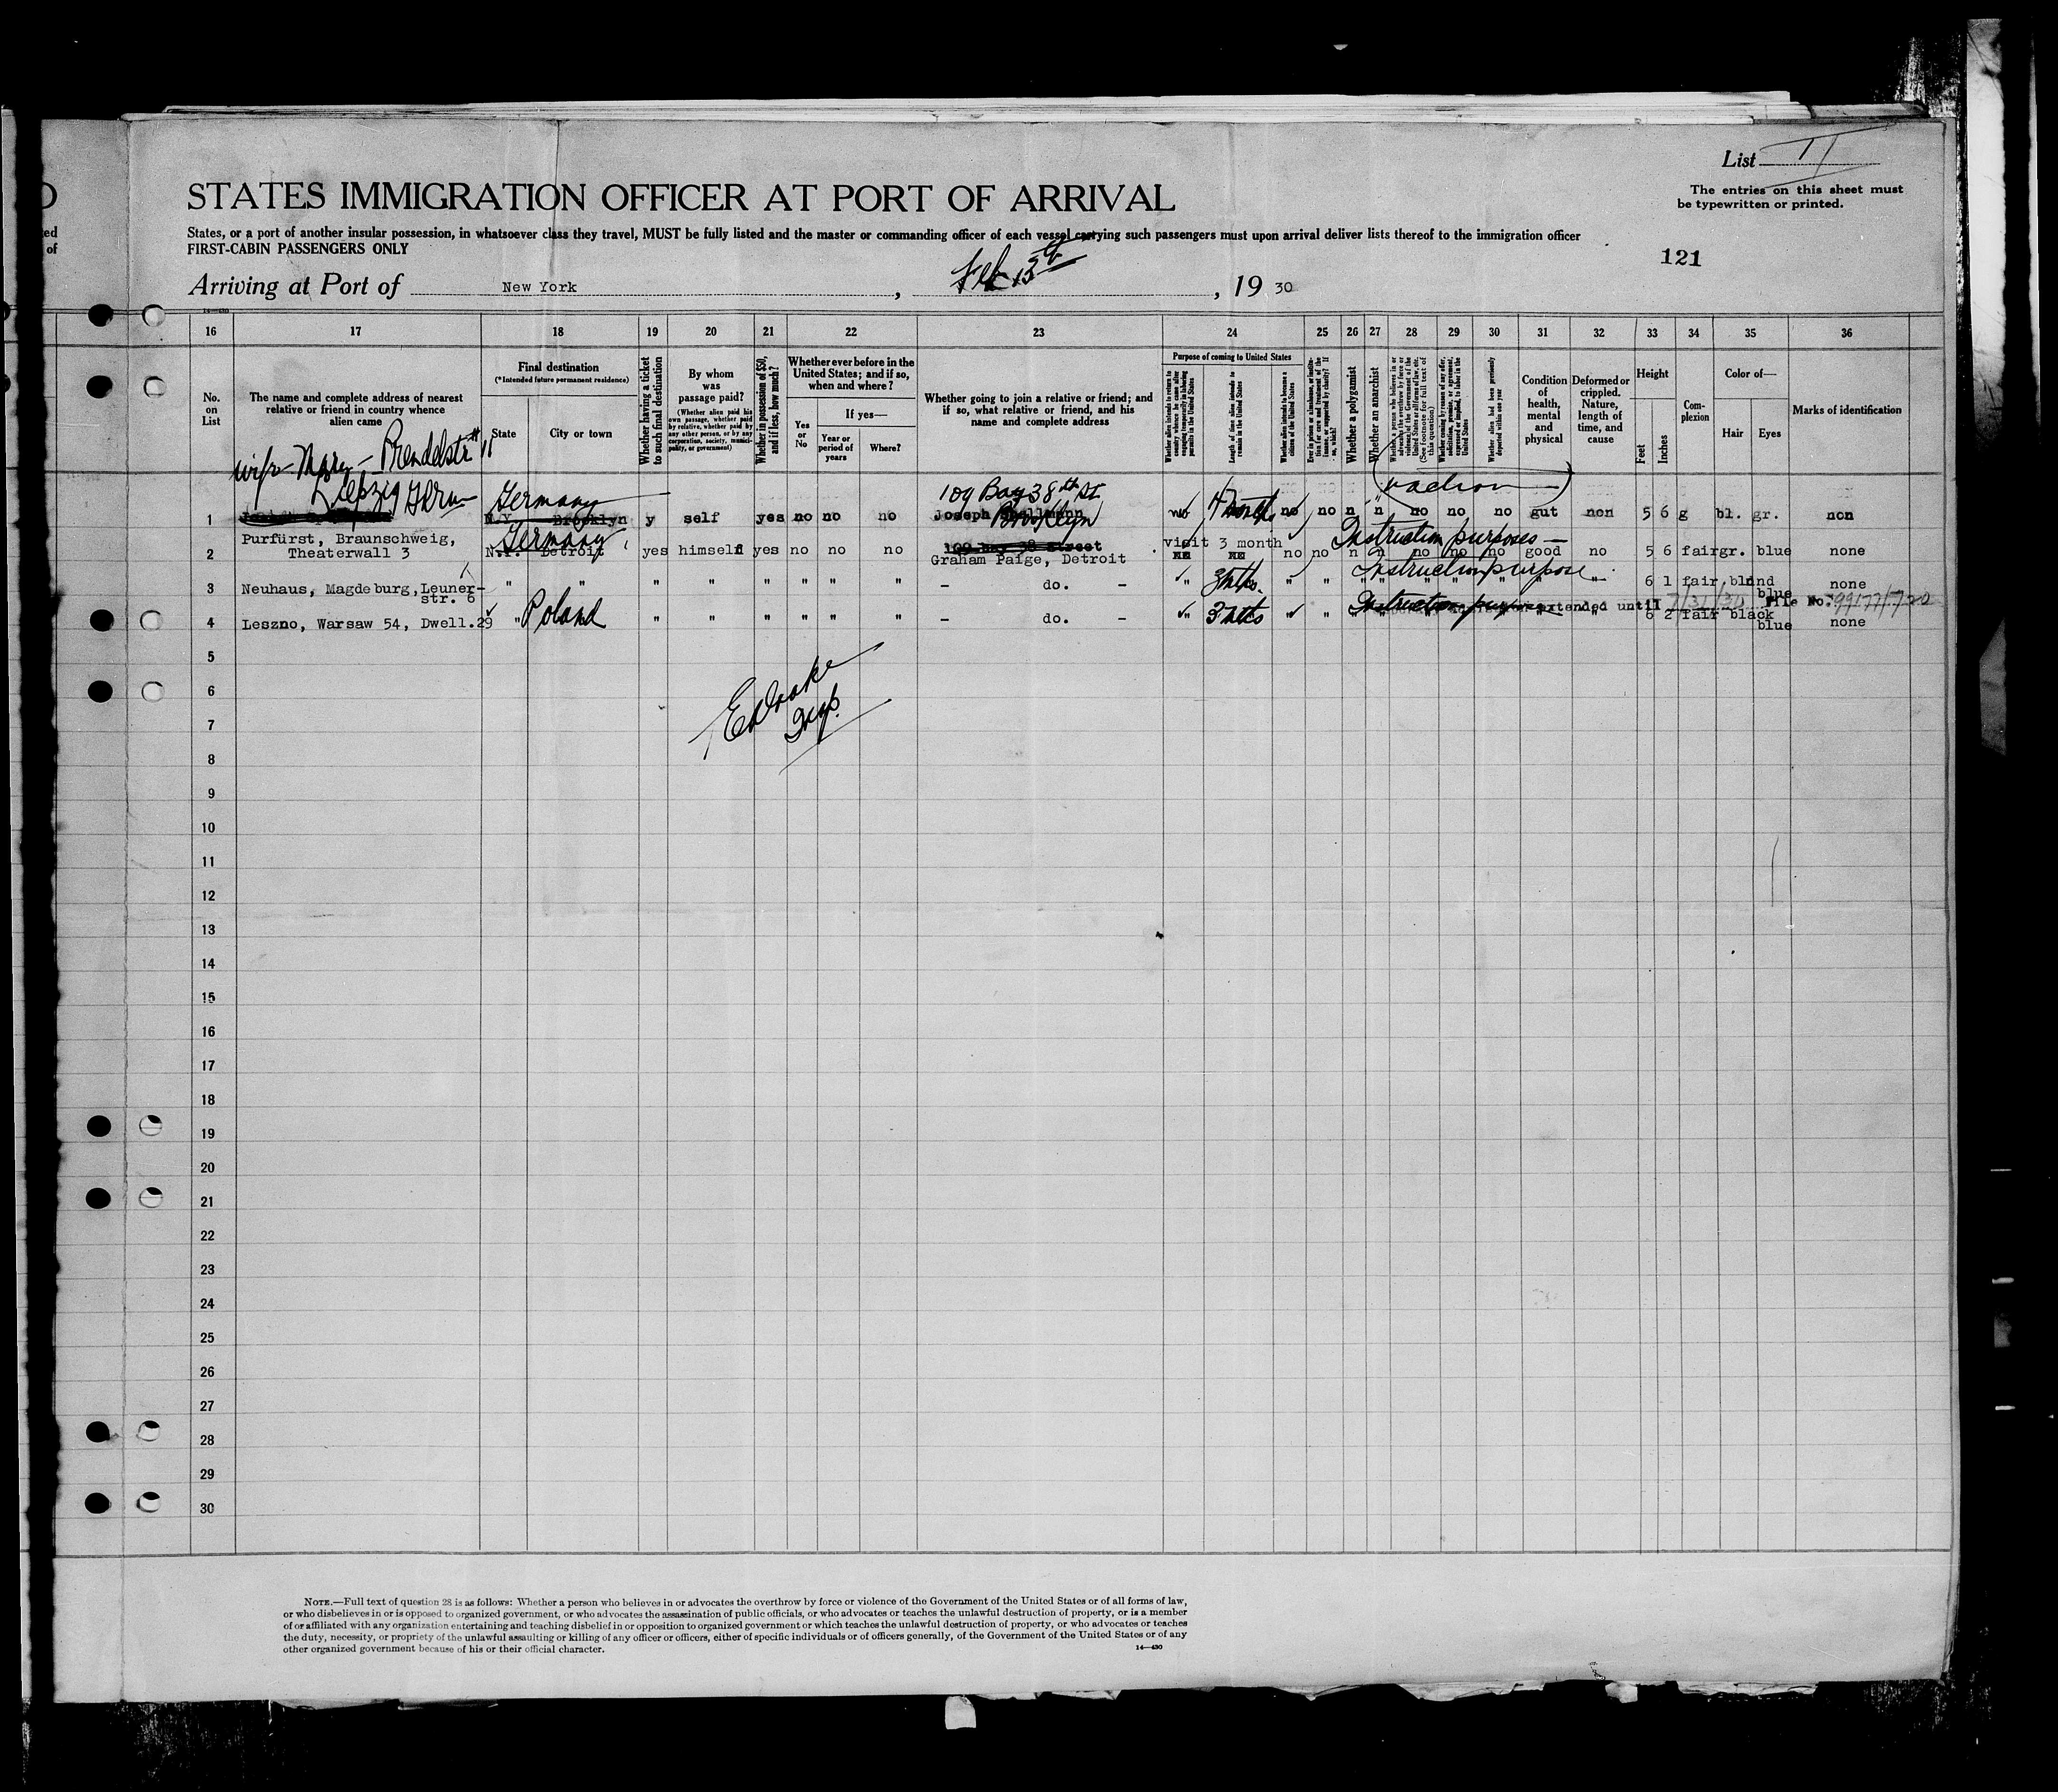 List II
The entries on this sheet must
be typewritten or printed.
STATES IMMIGRATION OFFICER AT PORT OF ARRIVAL
States, or a port of another insular possession, in whatsoever class they travel, MUST be fully listed and the master or commanding officer of each vessel carrying such passengers must upon arrival deliver lists thereof to the immigration officer
FIRST-CABIN PASSENGERS ONLY
121
Arriving at Port of New York, Feb 13th, 19 30
16 17 18 19 20 21 22 23 24 25 26 27 28 29 30 31 32 33 34 35 36
No. on List
The name and complete address of nearest
relative or friend in country whence
alien came
Final destination
(*Intended future permanent residence)
State
City or town
Whether having a ticket
to such final destination
By whom
was
passage paid?
(Whether alien paid his
own passage, whether paid
by relative, whether paid by
any other person, or by any
corporation, society, munici-
pality, or government)
Whether in possession of $50,
and if less, how much?
Whether ever before in the
United States; and if so,
when and where?
Yes or No
If yes—
Year or period of years
Where?
Whether going to join a relative or friend; and
if so, what relative or friend, and his
name and complete address
Purpose of coming to United States
Length of time alien intends to
remain in the United States
Whether alien intends to become a
citizen of the United States
Whether a polygamist
Whether an anarchist
Whether alien had been previously
deported within one year
Condition
of
health,
mental
and
physical
Deformed or
crippled.
Nature,
length of
time, and
cause
Height
Feet
Inches
Com-
plexion
Color of—
Hair
Eyes
Marks of identification
wife - Mary - Brendelstr 11
Leipzig Germ
1 Germany N.Y. Brooklyn y self yes no no no 109 Bay 38th St Joseph Brooklyn no 4 months no no n n no no no gut non 5 6 g bl. gr. non
2 Purfürst, Braunschweig,
Theaterwall 3 Germany N.Y. Detroit yes himself yes no no no 109 Bay 38 street
Graham Paige, Detroit visit 3 month no no n n no no no Instruction purposes— good no 5 6 fair gr. blue none
3 Neuhaus, Magdeburg, Leuner-
str. 6 " " " " " " " " - do. - " 3 mths. " " Instruction purpose " 6 1 fair blnd
blue none
4 Leszno, Warsaw 54, Dwell.29 " Poland " " " " " " - do. - " 3 mths " " Instruction purpose extended until 7/31/30 File No. 99177/720
6 2 fair black
blue none
5
6
7
8
9
10
11
12
13
14
15
16
17
18
19
20
21
22
23
24
25
26
27
28
29
30
NOTE.—Full text of question 28 is as follows: Whether a person who believes in or advocates the overthrow by force or violence of the Government of the United States or of all forms of law,
or who disbelieves in or is opposed to organized government, or who advocates the assassination of public officials, or who advocates or teaches the unlawful destruction of property, or is a member
of or affiliated with any organization entertaining and teaching disbelief in or opposition to organized government or which teaches the unlawful destruction of property, or who advocates or teaches
the duty, necessity, or propriety of the unlawful assaulting or killing of any officer or officers, either of specific individuals or of officers generally, of the Government of the United States or of any
other organized government because of his or their official character.
14—430